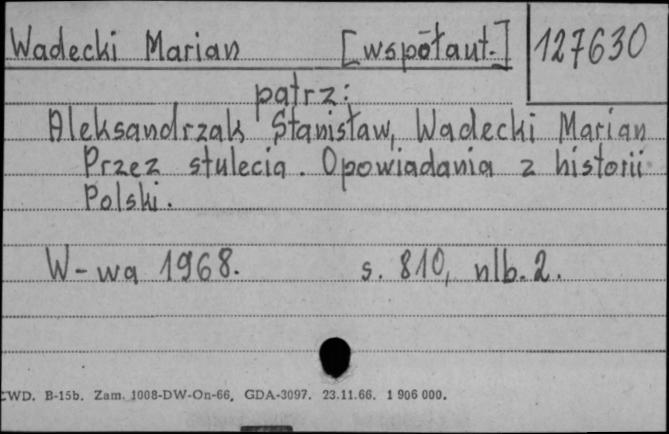 Wadecki Marian [współaut.] 127630
patrz:
Aleksandrzak Stanisław, Wadecki Marian
Przez stulecia. Opowiadania z historii
Polski.
W-wa 1968. s. 810, nlb. 2.
CWD. B-15b. Zam. 1008-DW-On-66. GDA-3097. 23.11.66. 1 906 000.